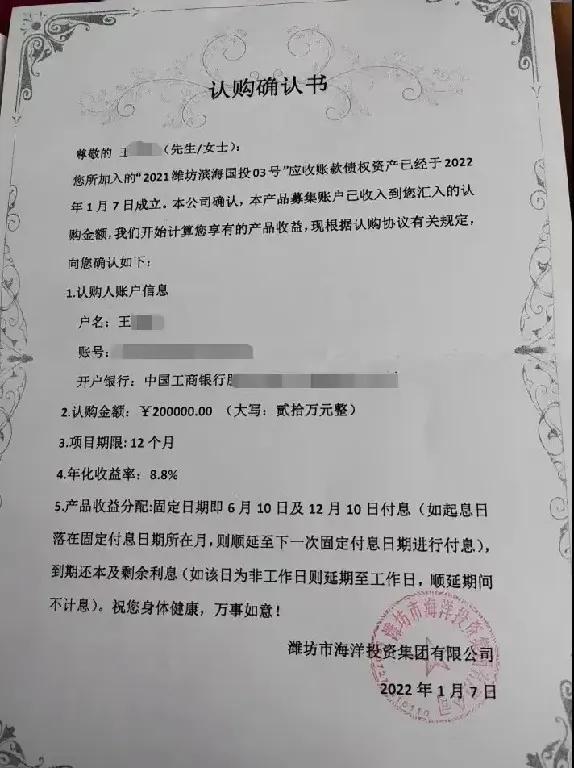 认购确认书
尊敬的 王（先生/女士）：
您所加入的“2021潍坊滨海国投03号”应收账款债权资产已经于2022
年1月7日成立。本公司确认，本产品募集账户已收入到您汇入的认
购金额，我们开始计算您享有的产品收益，现根据认购协议有关规定，
向您确认如下：
1.认购人账户信息
户名：王
账号：
开户银行：中国工商银行股
2.认购金额：￥200000.00 （大写：贰拾万元整）
3.项目期限：12个月
4.年化收益率：8.8%
5.产品收益分配：固定日期即6月10日及12月10日付息（如起息日
落在固定付息日期所在月，则顺延至下一次固定付息日期进行付息），
到期还本及剩余利息（如该日为非工作日则延期至工作日，顺延期间
不计息）。祝您身体健康，万事如意！
潍坊市海洋投资集团有限公司
2022年1月7日
潍坊市海洋投资集